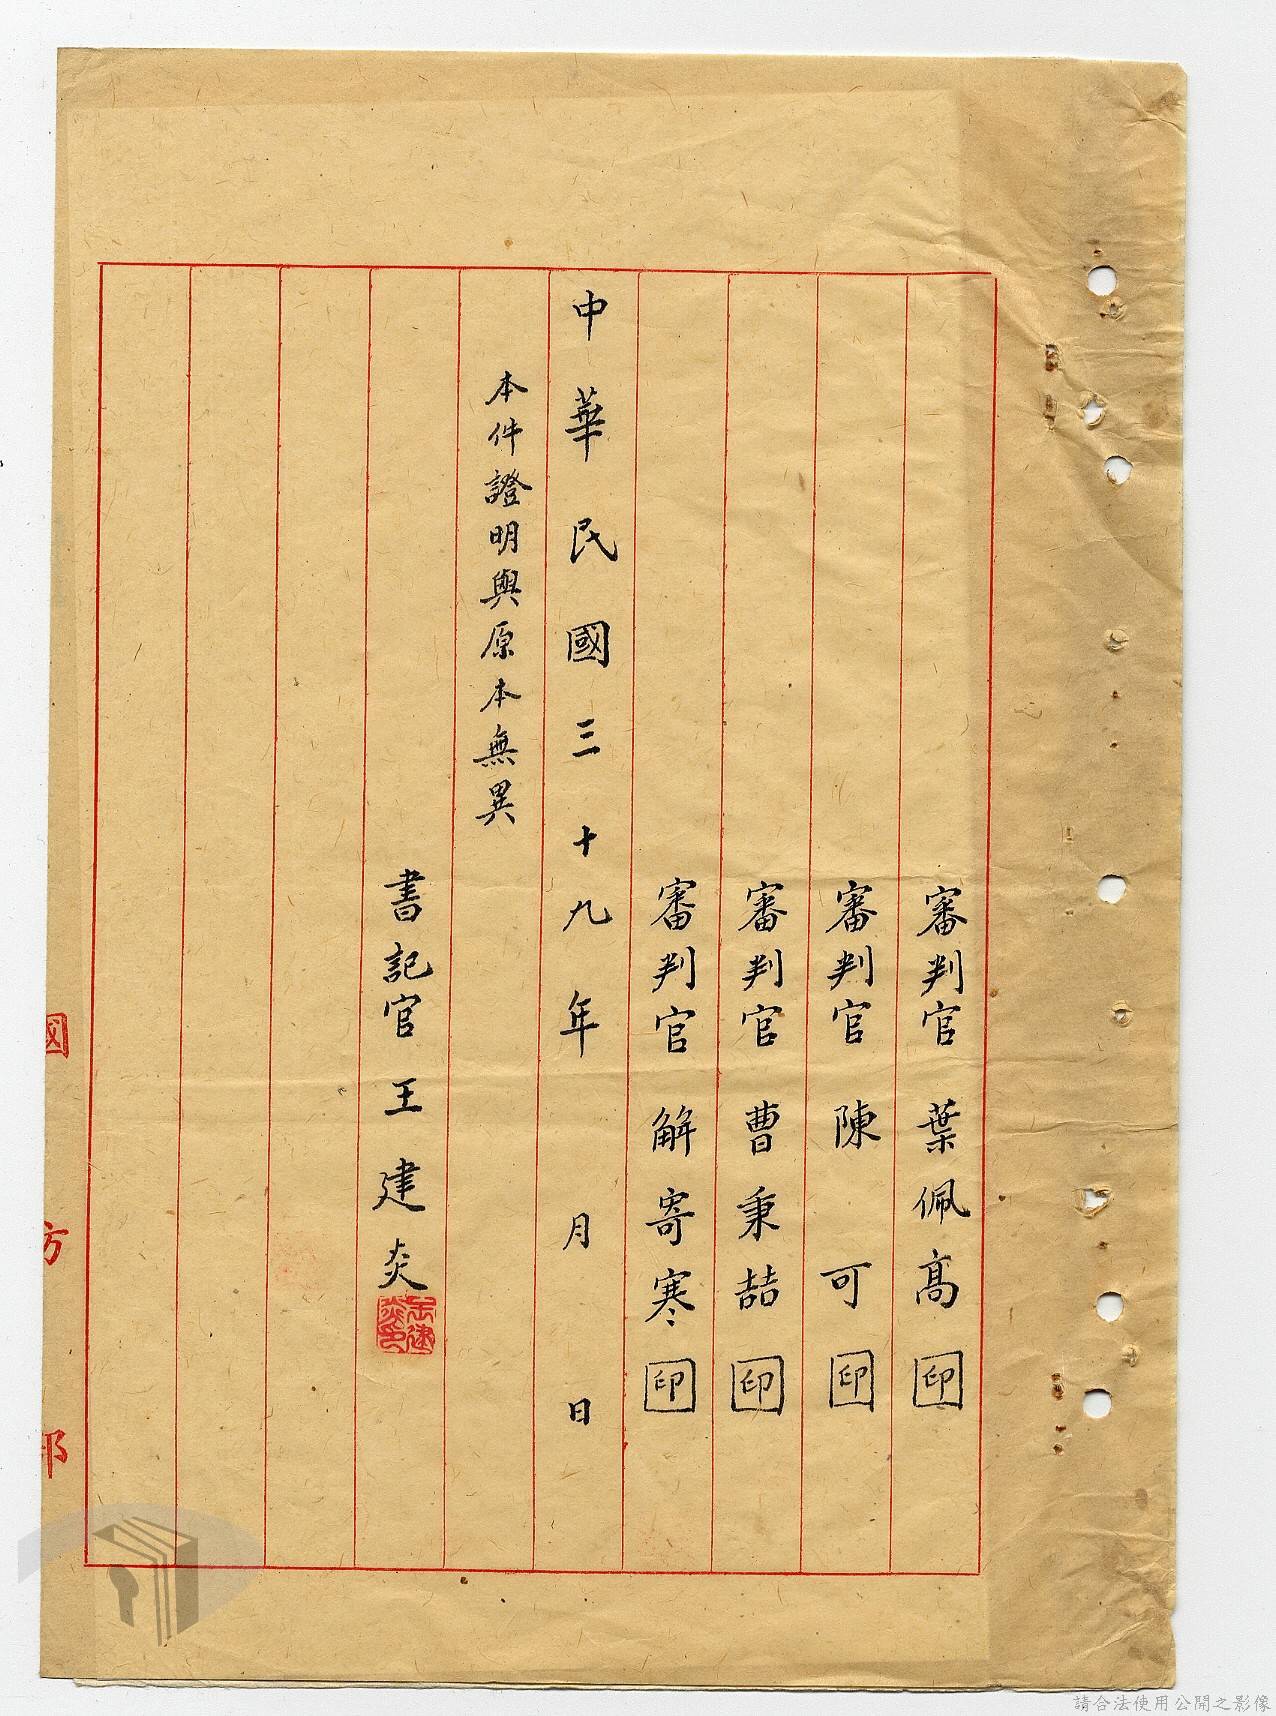 審判官 葉佩高 印
審判官 陳可 印
審判官 曹秉喆 印
審判官 解寄寒 印
中華民國三十九年 月 日
本件證明與原本無異
書記官 王建炎
王建炎印
國防部
請合法使用公開之影像